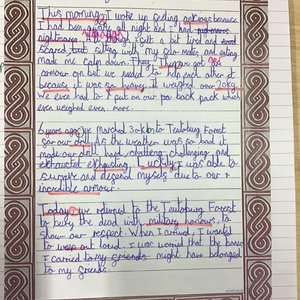 This morning, I woke up feeling anxious because
I had been awake all night and I had
nightmares. I felt a bit tired and
scared but sitting with my and eating
made me calm down. Then, I got
armour on but we need to help each other
because it was so heavy it weighed over 20kg
We even had to put on our back pack which
even weighed even more.
6 years ago, we marched 30km to Teutoburg Forest
for our drill. As the weather was so hard it
made our drill hard, challenging and
exhausting. Luckily I was able to
survive and depend myself due to our
incredible armour.
Today, we returned to the Teutoburg Forest
to bury the dead with military honours, to
show our respect. When I arrived, I wanted
to weep out loud. I was worried that the bones
I carried to my might have belonged
to my friends